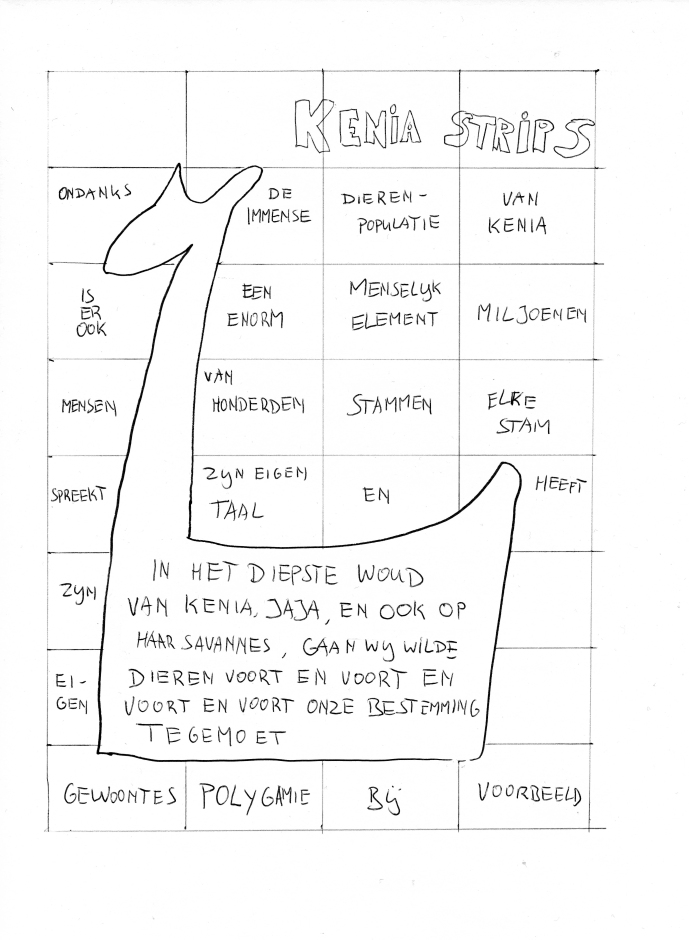 KENIA STRIPS
ONDANKS
DE
IMMENSE
DIEREN-
POPULATIE
VAN
KENIA
IS
ER
OOK
EEN
ENORM
MENSELYK
ELEMENT
MILJOENEN
MENSEN
VAN
HONDERDEN
STAMMEN
ELKE
STAM
SPREEKT
ZYN EIGEN
TAAL
EN
HEEFT
ZYN
EI-
GEN
IN HET DIEPSTE WOUD
VAN KENIA, JAJA, EN OOK OP
HAAR SAVANNES, GAAN WY WILDE
DIEREN VOORT EN VOORT EN
VOORT EN VOORT ONZE BESTEMMING
TEGEMOET
GEWOONTES
POLYGAMIE
Bij
VOORBEELD